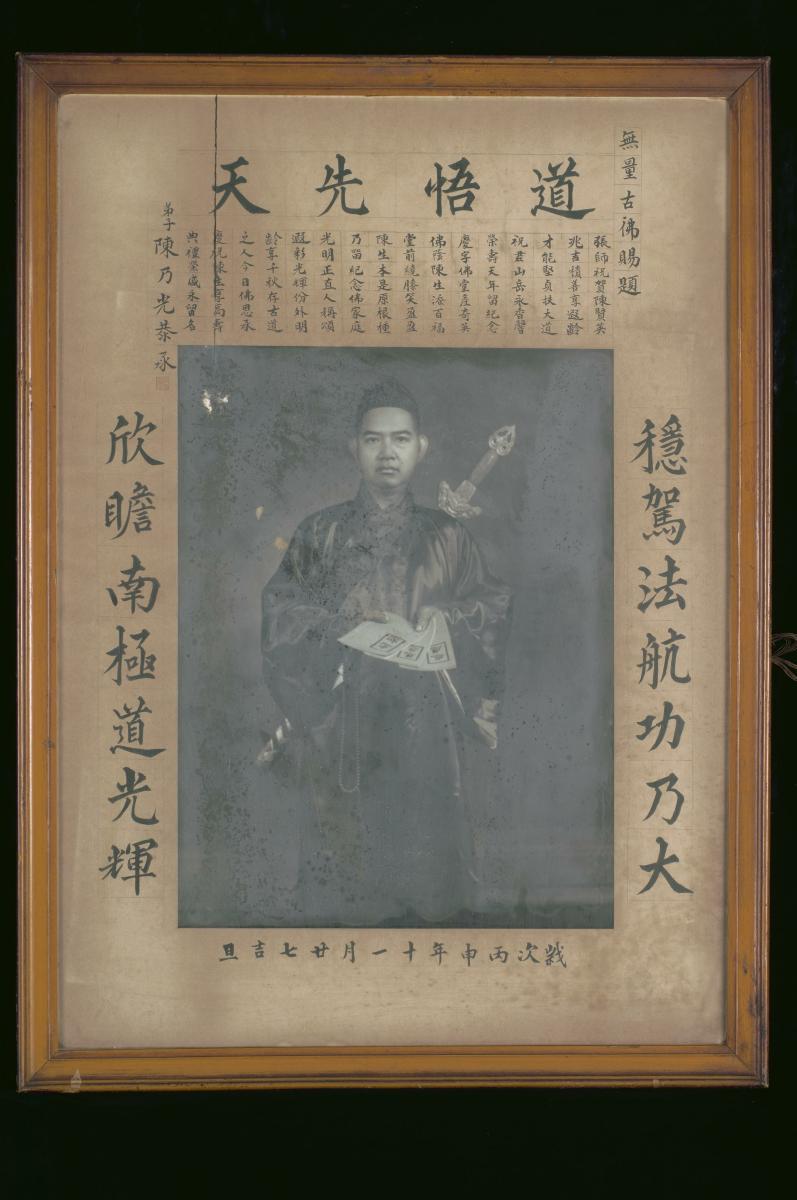 無量古彿賜題
道悟先天
張師祝賀陳賢英
兆吉積善享遐齡
才能堅貞扶大道
祝君山岳永杳馨
榮壽天年留紀念
慶字佛堂產奇英
佛蔭陳生添百福
堂前繞膝笑盈盈
陳生本是原根種
乃留紀念佛家庭
光明正直人稱頌
遐彩光輝份外明
齡享千秋存古道
之人今日佛恩承
慶祝陳生享高壽
典禮榮盛永留名
弟子陳乃光恭承
穩駕法航功乃大
欣瞻南極道光輝
歲次丙申年十一月廿七吉旦